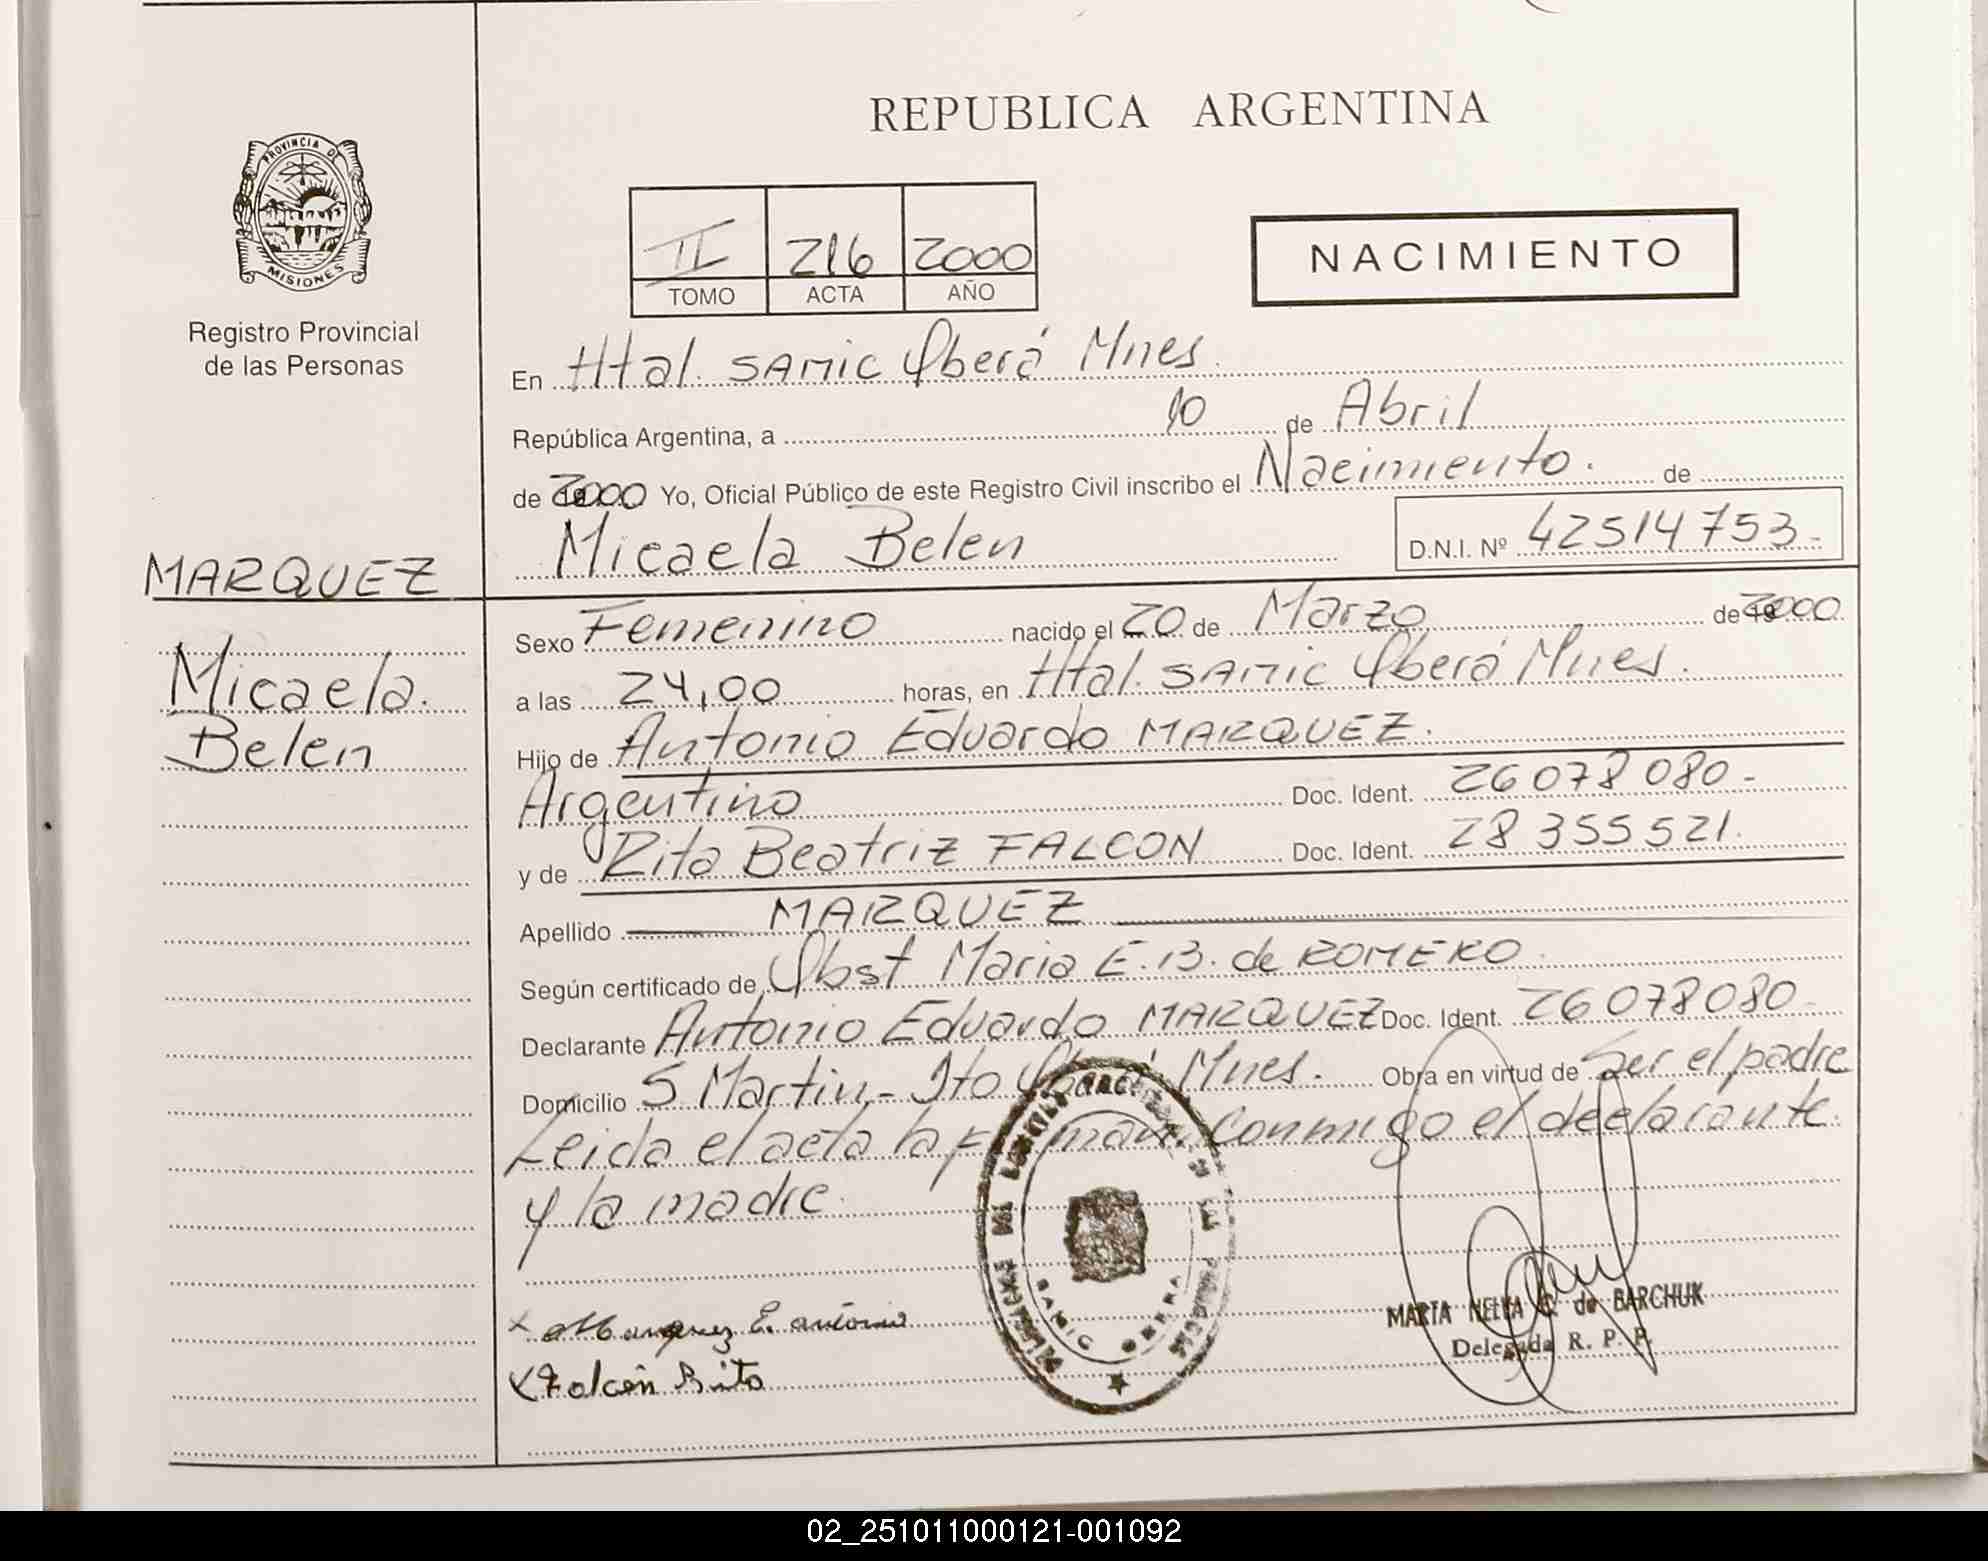 REPUBLICA ARGENTINA
PROVINCIA DE
MISIONES
Registro Provincial
de las Personas
II 216 2000
TOMO ACTA AÑO
NACIMIENTO
En Htal. SAMIC Oberá Mnes.
República Argentina, a 10 de Abril
de 2000 Yo, Oficial Público de este Registro Civil inscribo el Nacimiento. de
Micaela Belen D.N.I. Nº 42514753-
MARQUEZ
Micaela.
Belen
Sexo Femenino nacido el 20 de Marzo de 2000
a las 24,00 horas, en Htal. SAMIC Oberá Mnes.
Hijo de Antonio Eduardo MARQUEZ.
Argentino Doc. Ident. 26 078 080-
y de Rita Beatriz FALCON Doc. Ident. 28 355 521.
Apellido MARQUEZ
Según certificado de Obst Maria E. B. de ROMERO.
Declarante Antonio Eduardo MARQUEZ Doc. Ident. 26 078 080-
Domicilio S Martin- Mnes. Obra en virtud de Ser el padre
Leida el acta la conmigo el declarante
y la madre.
x Marquez E. antonio
x Falcón Rita
SAMIC OBERA
MARTA NELVA C. de BARCHUK
Delegada R. P. P.
02_251011000121-001092